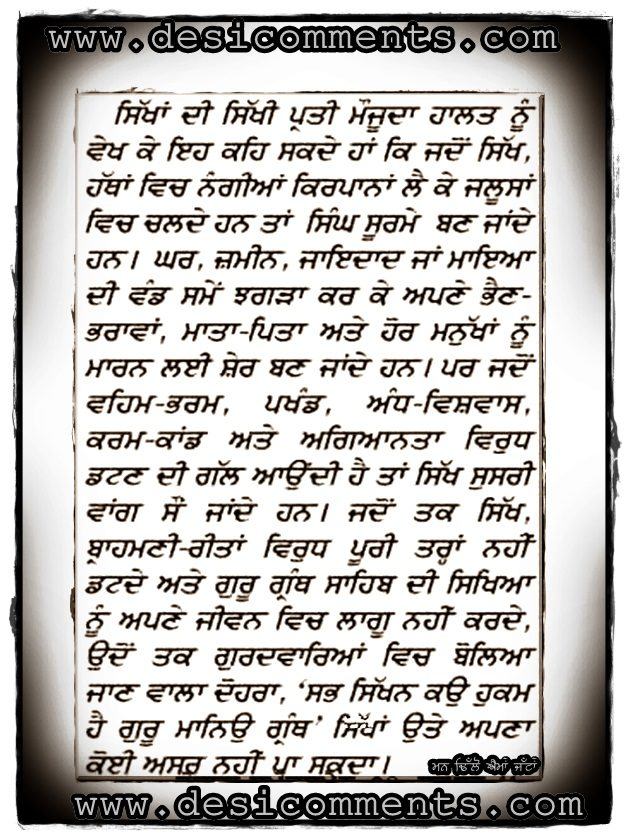 www.desicomments.com
ਸਿੱਖਾਂ ਦੀ ਸਿੱਖੀ ਪ੍ਰਤੀ ਮੌਜੂਦਾ ਹਾਲਤ ਨੂੰ
ਵੇਖ ਕੇ ਇਹ ਕਹਿ ਸਕਦੇ ਹਾਂ ਕਿ ਜਦੋਂ ਸਿੱਖ,
ਹੱਥਾਂ ਵਿਚ ਨੰਗੀਆਂ ਕਿਰਪਾਨਾਂ ਲੈ ਕੇ ਜਲੂਸਾਂ
ਵਿਚ ਚਲਦੇ ਹਨ ਤਾਂ ਸਿੰਘ ਸੂਰਮੇ ਬਣ ਜਾਂਦੇ
ਹਨ। ਘਰ, ਜ਼ਮੀਨ, ਜਾਇਦਾਦ ਜਾਂ ਮਾਇਆ
ਦੀ ਵੰਡ ਸਮੇਂ ਝਗੜਾ ਕਰ ਕੇ ਅਪਣੇ ਭੈਣ-
ਭਰਾਵਾਂ, ਮਾਤਾ-ਪਿਤਾ ਅਤੇ ਹੋਰ ਮਨੁੱਖਾਂ ਨੂੰ
ਮਾਰਨ ਲਈ ਸ਼ੇਰ ਬਣ ਜਾਂਦੇ ਹਨ। ਪਰ ਜਦੋਂ
ਵਹਿਮ-ਭਰਮ, ਪਖੰਡ, ਅੰਧ-ਵਿਸ਼ਵਾਸ,
ਕਰਮ-ਕਾਂਡ ਅਤੇ ਅਗਿਆਨਤਾ ਵਿਰੁਧ
ਡਟਣ ਦੀ ਗੱਲ ਆਉਂਦੀ ਹੈ ਤਾਂ ਸਿੱਖ ਸੁਸਰੀ
ਵਾਂਗ ਸੌਂ ਜਾਂਦੇ ਹਨ। ਜਦੋਂ ਤਕ ਸਿੱਖ,
ਬ੍ਰਾਹਮਣੀ-ਰੀਤਾਂ ਵਿਰੁਧ ਪੂਰੀ ਤਰ੍ਹਾਂ ਨਹੀਂ
ਡਟਦੇ ਅਤੇ ਗੁਰੂ ਗ੍ਰੰਥ ਸਾਹਿਬ ਦੀ ਸਿਖਿਆ
ਨੂੰ ਅਪਣੇ ਜੀਵਨ ਵਿਚ ਲਾਗੂ ਨਹੀਂ ਕਰਦੇ,
ਉਦੋਂ ਤਕ ਗੁਰਦਵਾਰਿਆਂ ਵਿਚ ਬੋਲਿਆ
ਜਾਣ ਵਾਲਾ ਦੋਹਰਾ, ‘ਸਭ ਸਿੱਖਨ ਕਉ ਹੁਕਮ
ਹੈ ਗੁਰੂ ਮਾਨਿਉ ਗ੍ਰੰਥ’ ਸਿੱਖਾਂ ਉਤੇ ਅਪਣਾ
ਕੋਈ ਅਸਰ ਨਹੀਂ ਪਾ ਸਕਦਾ।
ਮਨ ਢਿੱਲੋਂ ਐਮਾਂ ਜੱਟਾਂ
www.desicomments.com